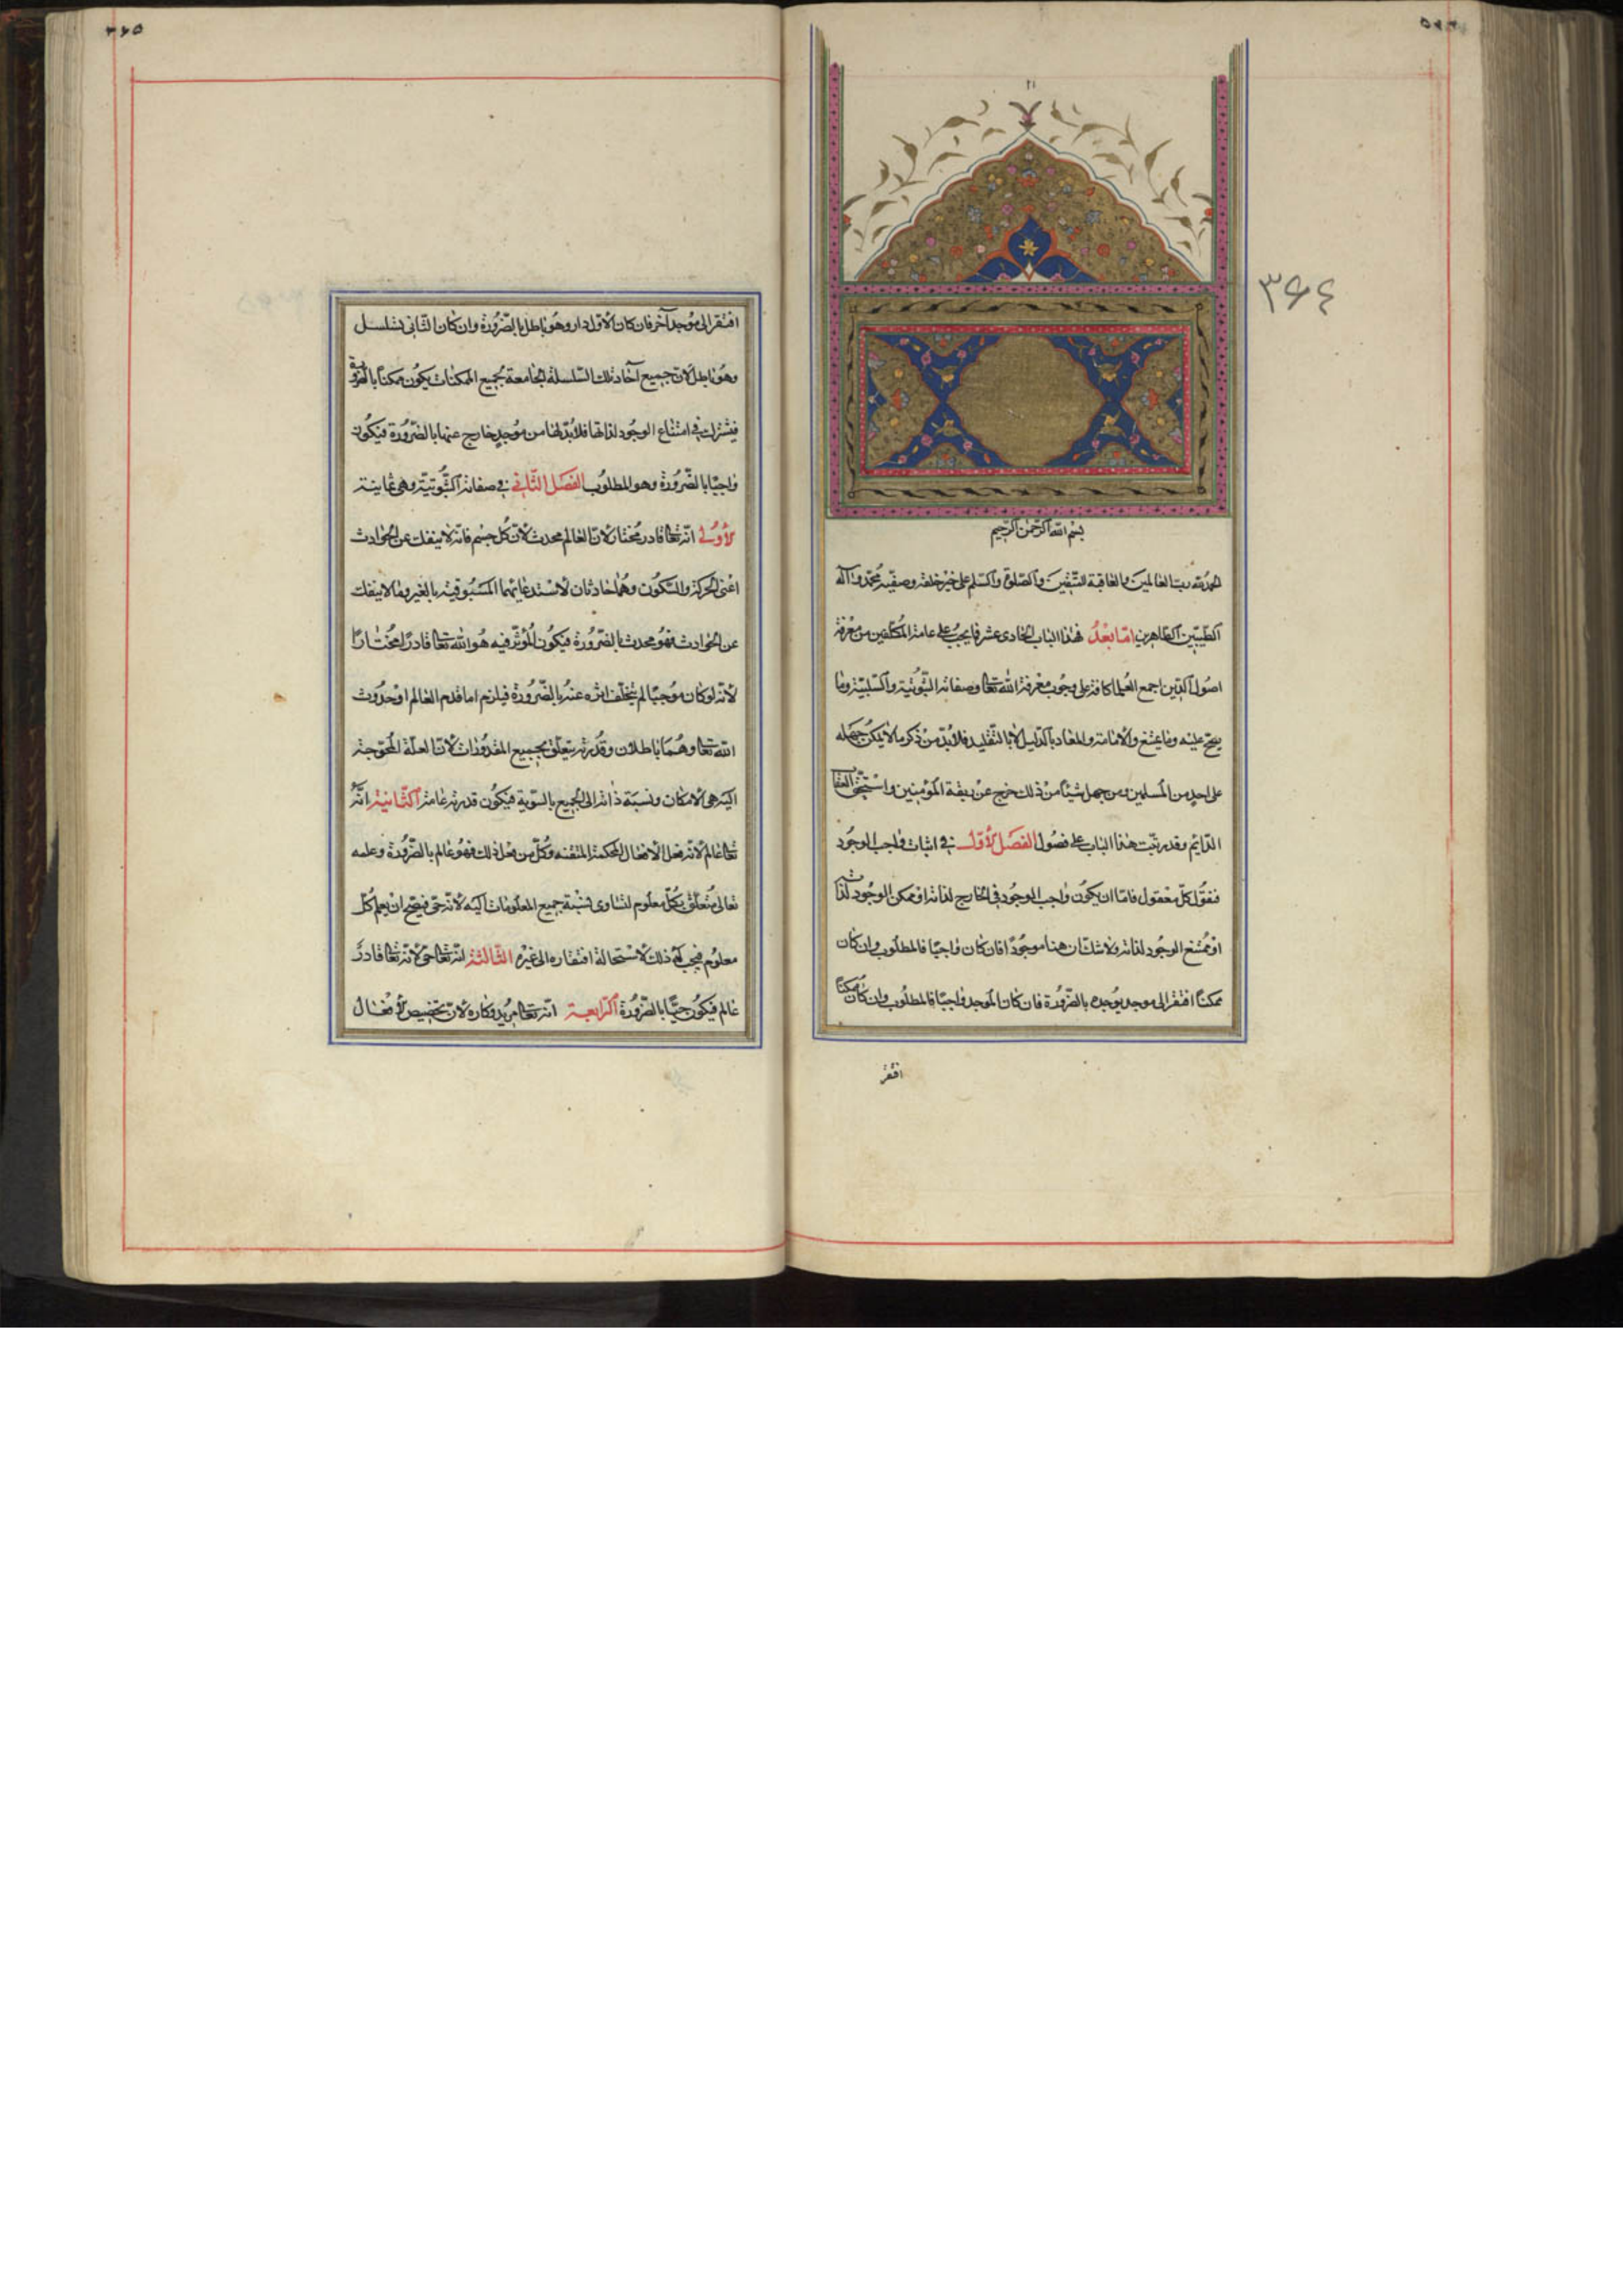 ٣٦٤
بسم الله الرحمن الرحيم
الحمد لله رب العالمين والعاقبة للمتقين والصلوة والسلم على خير خلقه وصفيه محمد وآله
الطيبين الطاهرين اما بعد فهذا الباب الحادى عشر فيما يجب على عامة المكلفين من معرفة
اصول الدين اجمع العلما كافة على وجوب معرفة الله تعالى وصفاته الثبوتية والسلبية وما
يصح عليه وما يمتنع والامامة والمعاد بالدليل لا بالتقليد فلا بد من ذكر ما لا يمكن جهله
على احد من المسلمين ومن جهل شيئا من ذلك خرج عن ربقة المؤمنين واستحق العقاب
الدايم وقد رتبت هذا الباب على فصول الفصل الاول في اثبات واجب الوجود
فنقول كل معقول فاما ان يكون واجب الوجود في الخارج لذاته او ممكن الوجود لذاته
او ممتنع الوجود لذاته ولا شك ان هنا موجودا فان كان واجبا فالمطلوب وان كان
ممكنا افتقر الى موجد يوجده بالضرورة فان كان الموجد واجبا فالمطلوب وان كان ممكنا
افتقر
٣٦٥
افتقر الى موجد آخر فان كان الاول دار وهو باطل بالضرورة وان كان الثانى تسلسل
وهو باطل لان جميع آحاد تلك السلسلة الجامعة لجميع الممكنات يكون ممكنا بالضرورة
فيشترك في امتناع الوجود لذاتها فلا بد لها من موجد خارج عنها بالضرورة فيكون
واجبا بالضرورة وهو المطلوب الفصل الثاني في صفاته الثبوتية وهى ثمانية
الاولى انه تعالى قادر مختار لان العالم محدث لان كل جسم فانه لا ينفك عن الحوادث
اعنى الحركة والسكون وهما حادثان لاستدعائهما المسبوقية بالغير وما لا ينفك
عن الحوادث فهو محدث بالضرورة فيكون المؤثر فيه هو الله تعالى قادرا مختارا
لانه لو كان موجبا لم يتخلف اثره عنه بالضرورة فيلزم اما قدم العالم او حدوث
الله تعالى وهما باطلان وقدرته يتعلق بجميع المقدورات لان العلة المحوجة
اليه هى الامكان ونسبة ذاته الى الجميع بالسوية فيكون قدرته عامة الثانية انه
تعالى عالم لانه فعل الافعال المحكمة المتقنه وكل من فعل ذلك فهو عالم بالضرورة وعلمه
تعالى متعلق بكل معلوم لتساوى نسبة جميع المعلومات اليه لانه حى فيصح ان يعلم كل
معلوم فيجب له ذلك لاستحالة افتقاره الى غيره الثالثة انه تعالى حى لانه تعالى قادر
عالم فيكون حيا بالضرورة الرابعة انه تعالى مريد وكاره لان تخصيص الافعال